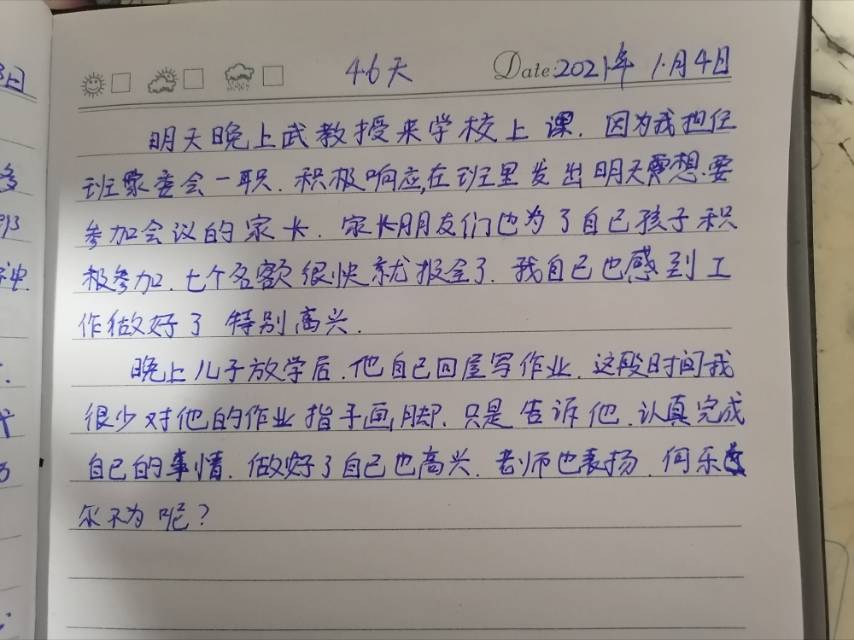 46天 Date:2021年1月4日
明天晚上武教授来学校上课.因为我担任
班家委会一职.积极响应,在班里发出明天想要
参加会议的家长.家长朋友们也为了自己孩子积
极参加.七个名额很快就报全了.我自己也感到工
作做好了特别高兴.
晚上儿子放学后.他自己回屋写作业.这段时间我
很少对他的作业指手画脚.只是告诉他.认真完成
自己的事情.做好了自己也高兴.老师也表扬.何乐
尔不为呢?